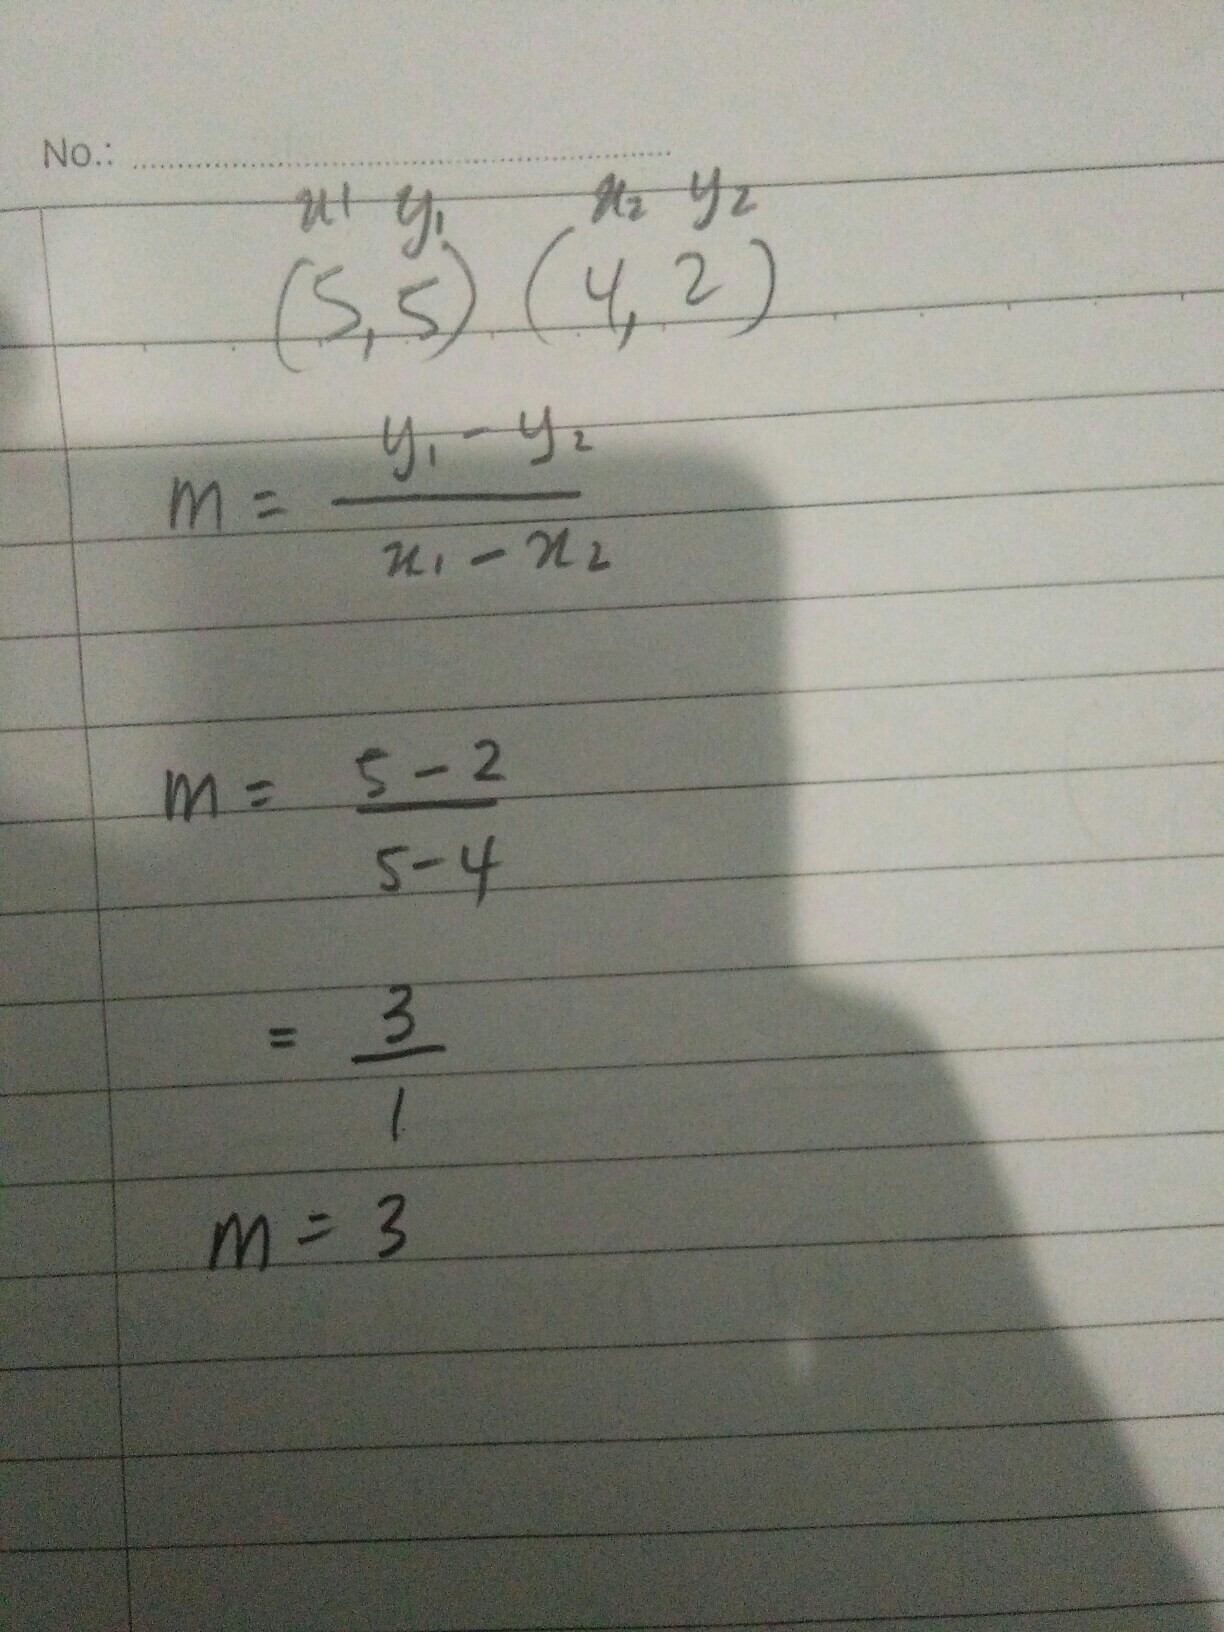 No.:
x1 y1 x2 y2
(5,5) (4,2)
m = y1 - y2
x1 - x2
m = 5 - 2
5 - 4
= 3
1
m = 3